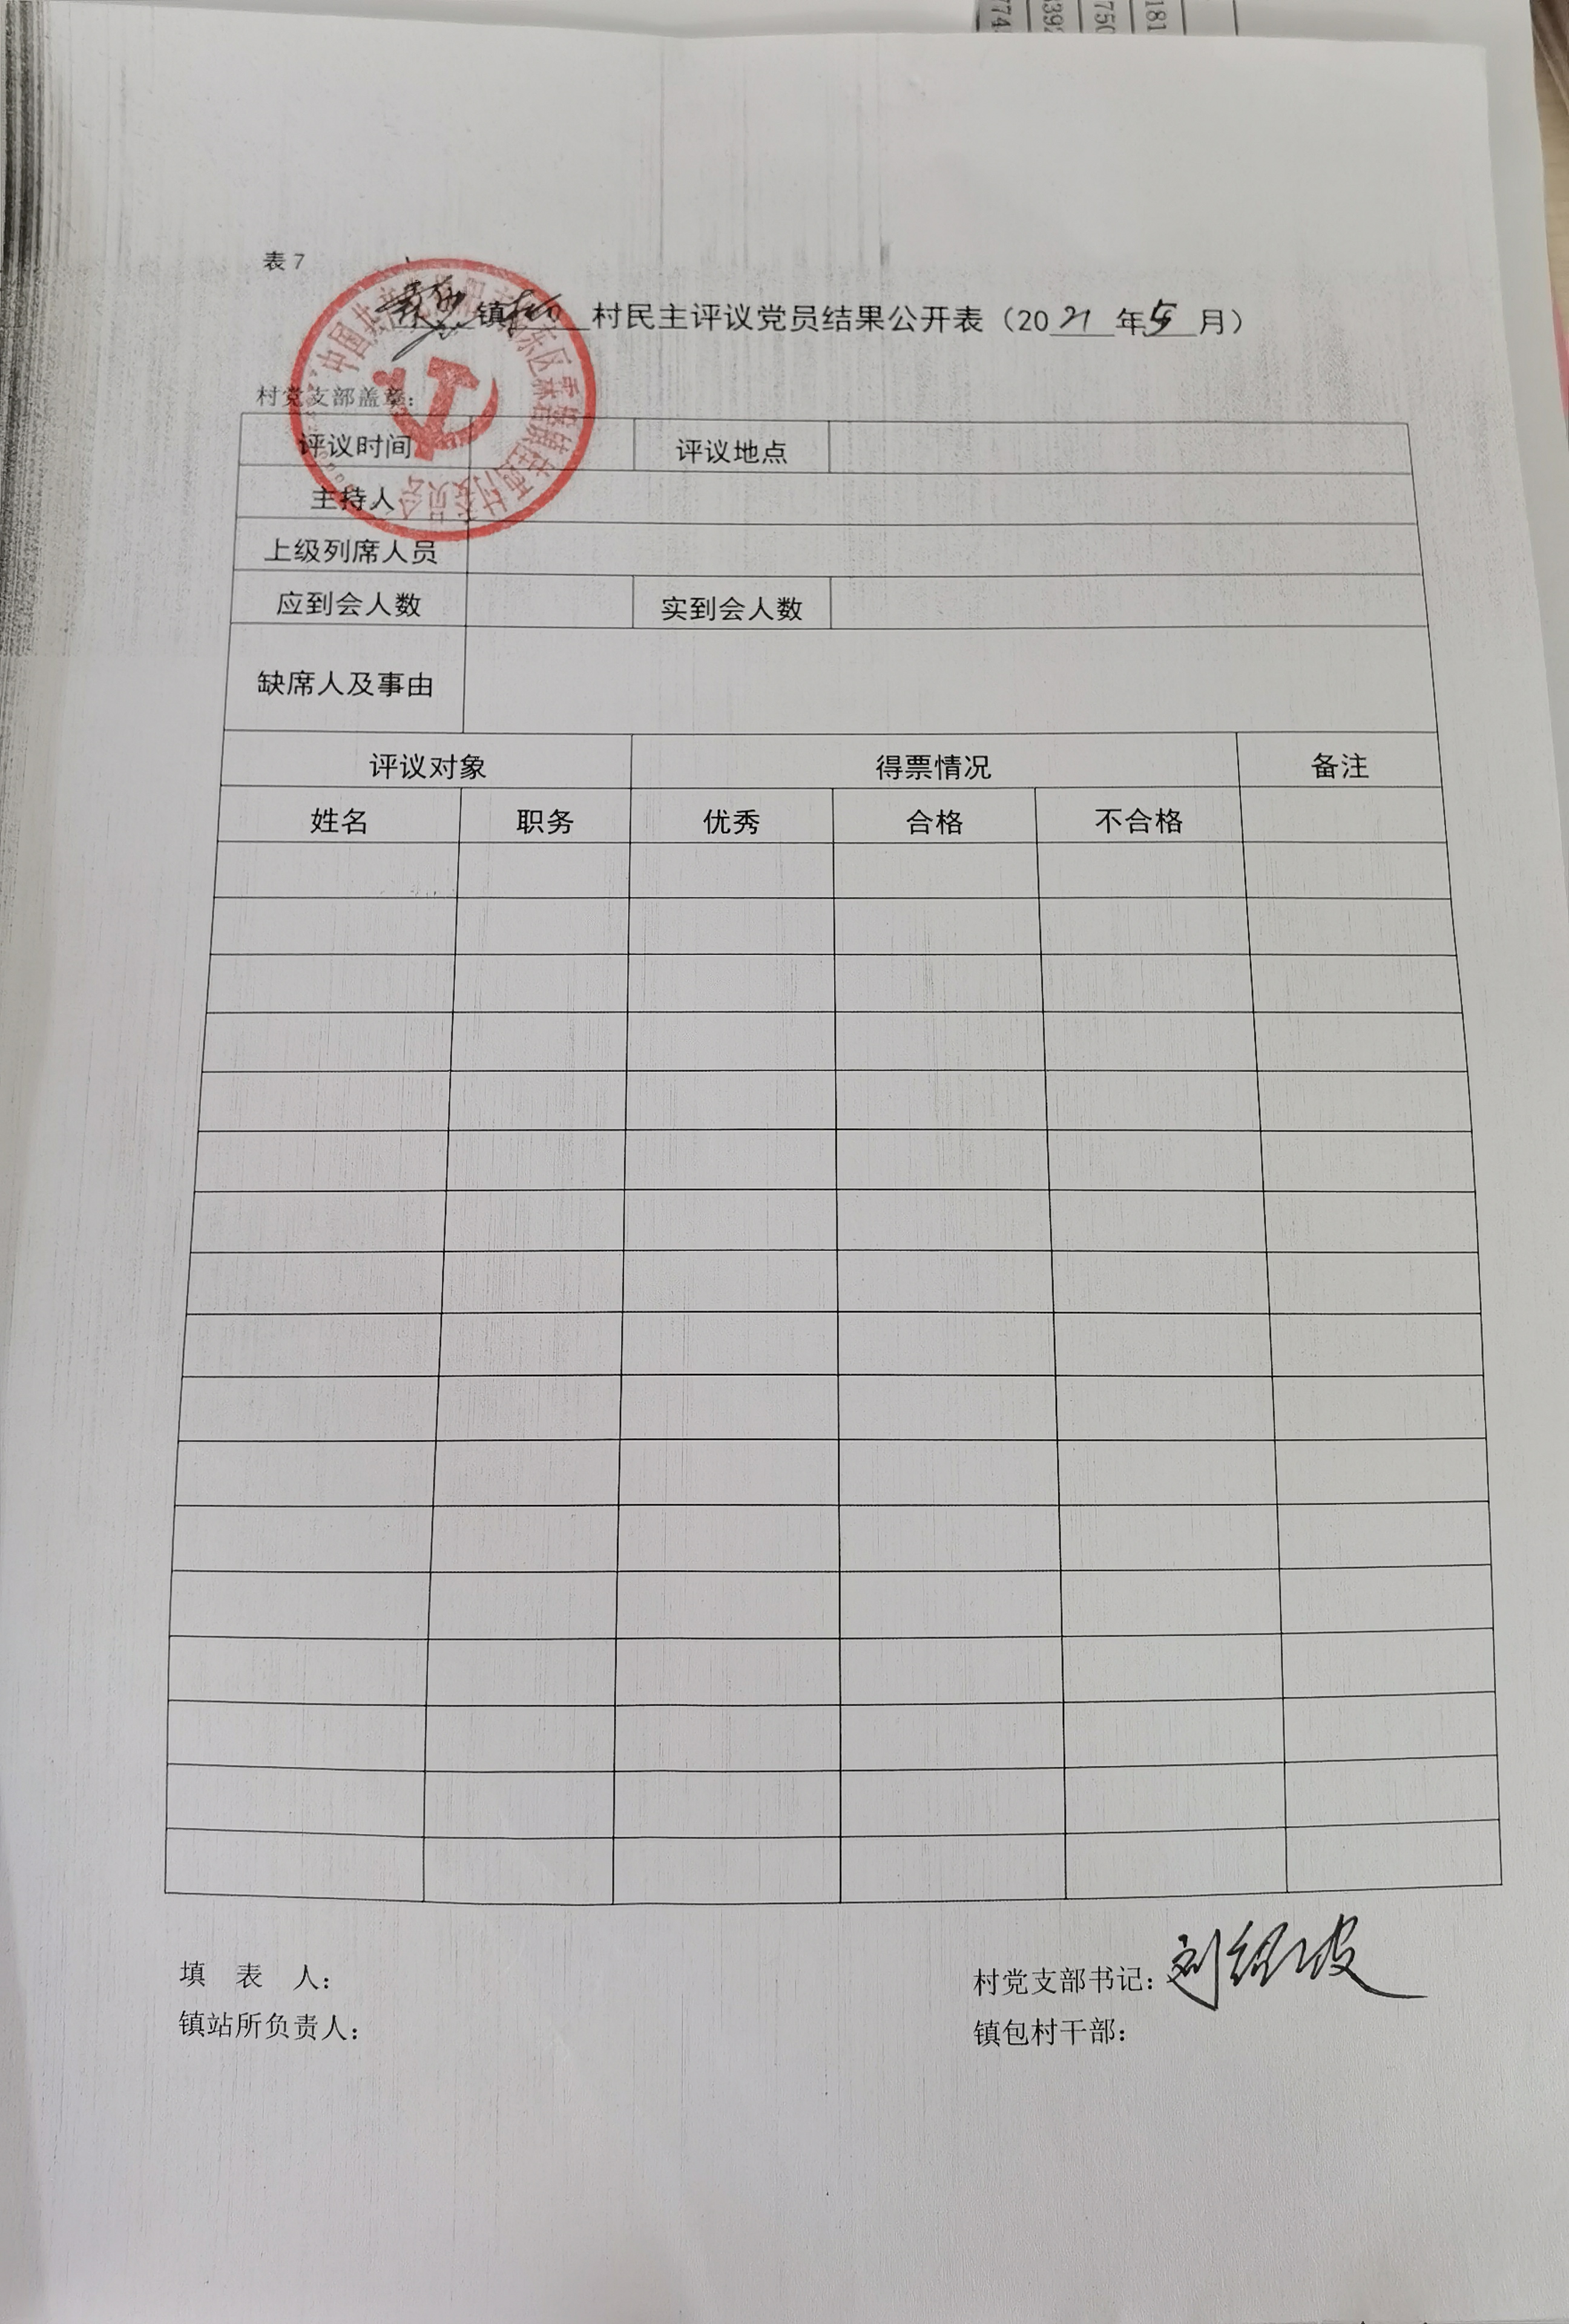 774
392
750
181
表7
镇 村民主评议党员结果公开表（2021年5月）
村党支部盖章：
评议时间 评议地点
主持人
上级列席人员
应到会人数 实到会人数
缺席人及事由
评议对象 得票情况 备注
姓名 职务 优秀 合格 不合格
填 表 人： 村党支部书记：刘绍波
镇站所负责人： 镇包村干部：